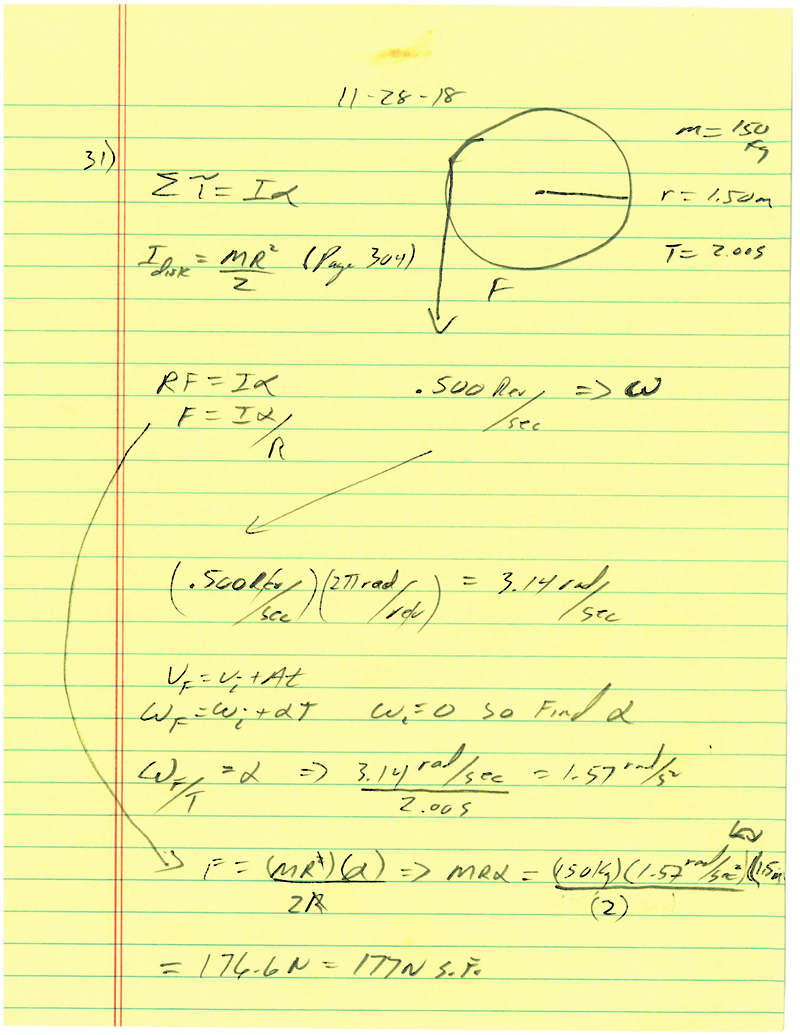 11-28-18
31)
m = 150 Kg
Στ = Iα
r = 1.50m
I disk = MR²/2 (Page 304)
T = 2.00s
F
RF = Iα
.500 Rev/sec => ω
F = Iα/R
(.500 Rev/sec)(2π rad/rev) = 3.14 rad/sec
V_F = v_i + At
ω_F = ω_i + αT ω_i = 0 so Find α
ω_F/T = α => 3.14 rad/sec / 2.00s = 1.57 rad/s²
F = (MR²)(α)/2R => MRα = (150Kg)(1.57 rad/sec²)(1.5m/(2)
= 176.6N = 177N s.F.